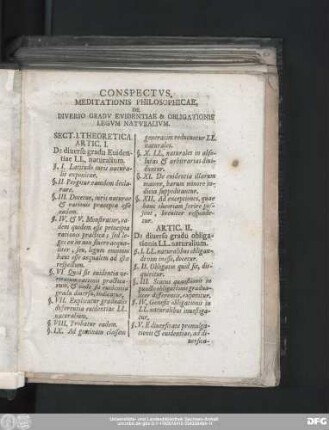 CONSPECTVS,
MEDITATIONIS PHILOSOPHICAE,
DE
DIVERSO GRADV EVIDENTIAE & OBLIGATIONIS
LEGVM NATVRALIVM.
SECT. I THEORETICA
ARTIC. I.
De diverso gradu Eviden-
tiae LL. naturalium.
§. I. Latitudo juris natura-
lis exponitur.
§. II Pergitur eandem decla-
rare.
§. III. Decetur, juris naturae
& rationis praecepta esse
eadem.
§. IV. & V. Monstratur, ea-
dem quidem esse praecepta
rationis practicae; sed le-
ges ea in nos facere acqui-
situs, seu, legem omnem
haud esse aequalem ad isto
respectum.
§. VI Quid sit evidentia ve-
rum rationis practica-
rum, & unde sit evidentia
gradu diversa, indicatur.
§. VII. Explicatur gradualis
differentia evidentiae LL.
naturalium.
§. VIII. Probatur eadem.
§. IX. Ad geminam classem
generatim reducuntur LL.
naturales.
§. X. LL. naturales in abso-
lutas & arbitrarias divi-
duntur.
§. XI. De evidentia illarum
maiore, harum minore ju-
dicia suppeditantur.
§. XII. Ad exceptiones, quae
haec doctrinae forsitan pos-
sent, breviter responde-
tur.
ARTIC. II.
De diverso gradu obliga-
tionis LL. naturalium.
§. I. LL. naturalibus obliga-
tionem inesse, docetur.
§. II. Obligatio quid sit, dis-
quiritur.
§. III. Status quaestionis in
quadis obligationis gradua-
liter differentia, exponitur.
§. IV. Genesis obligationis in
LL. naturalibus investiga-
tur.
§. V. E diversitate promulga-
tionis & evidentiae, ad di-
versita-
Universitäts- und Landesbibliothek Sachsen-Anhalt
DFG